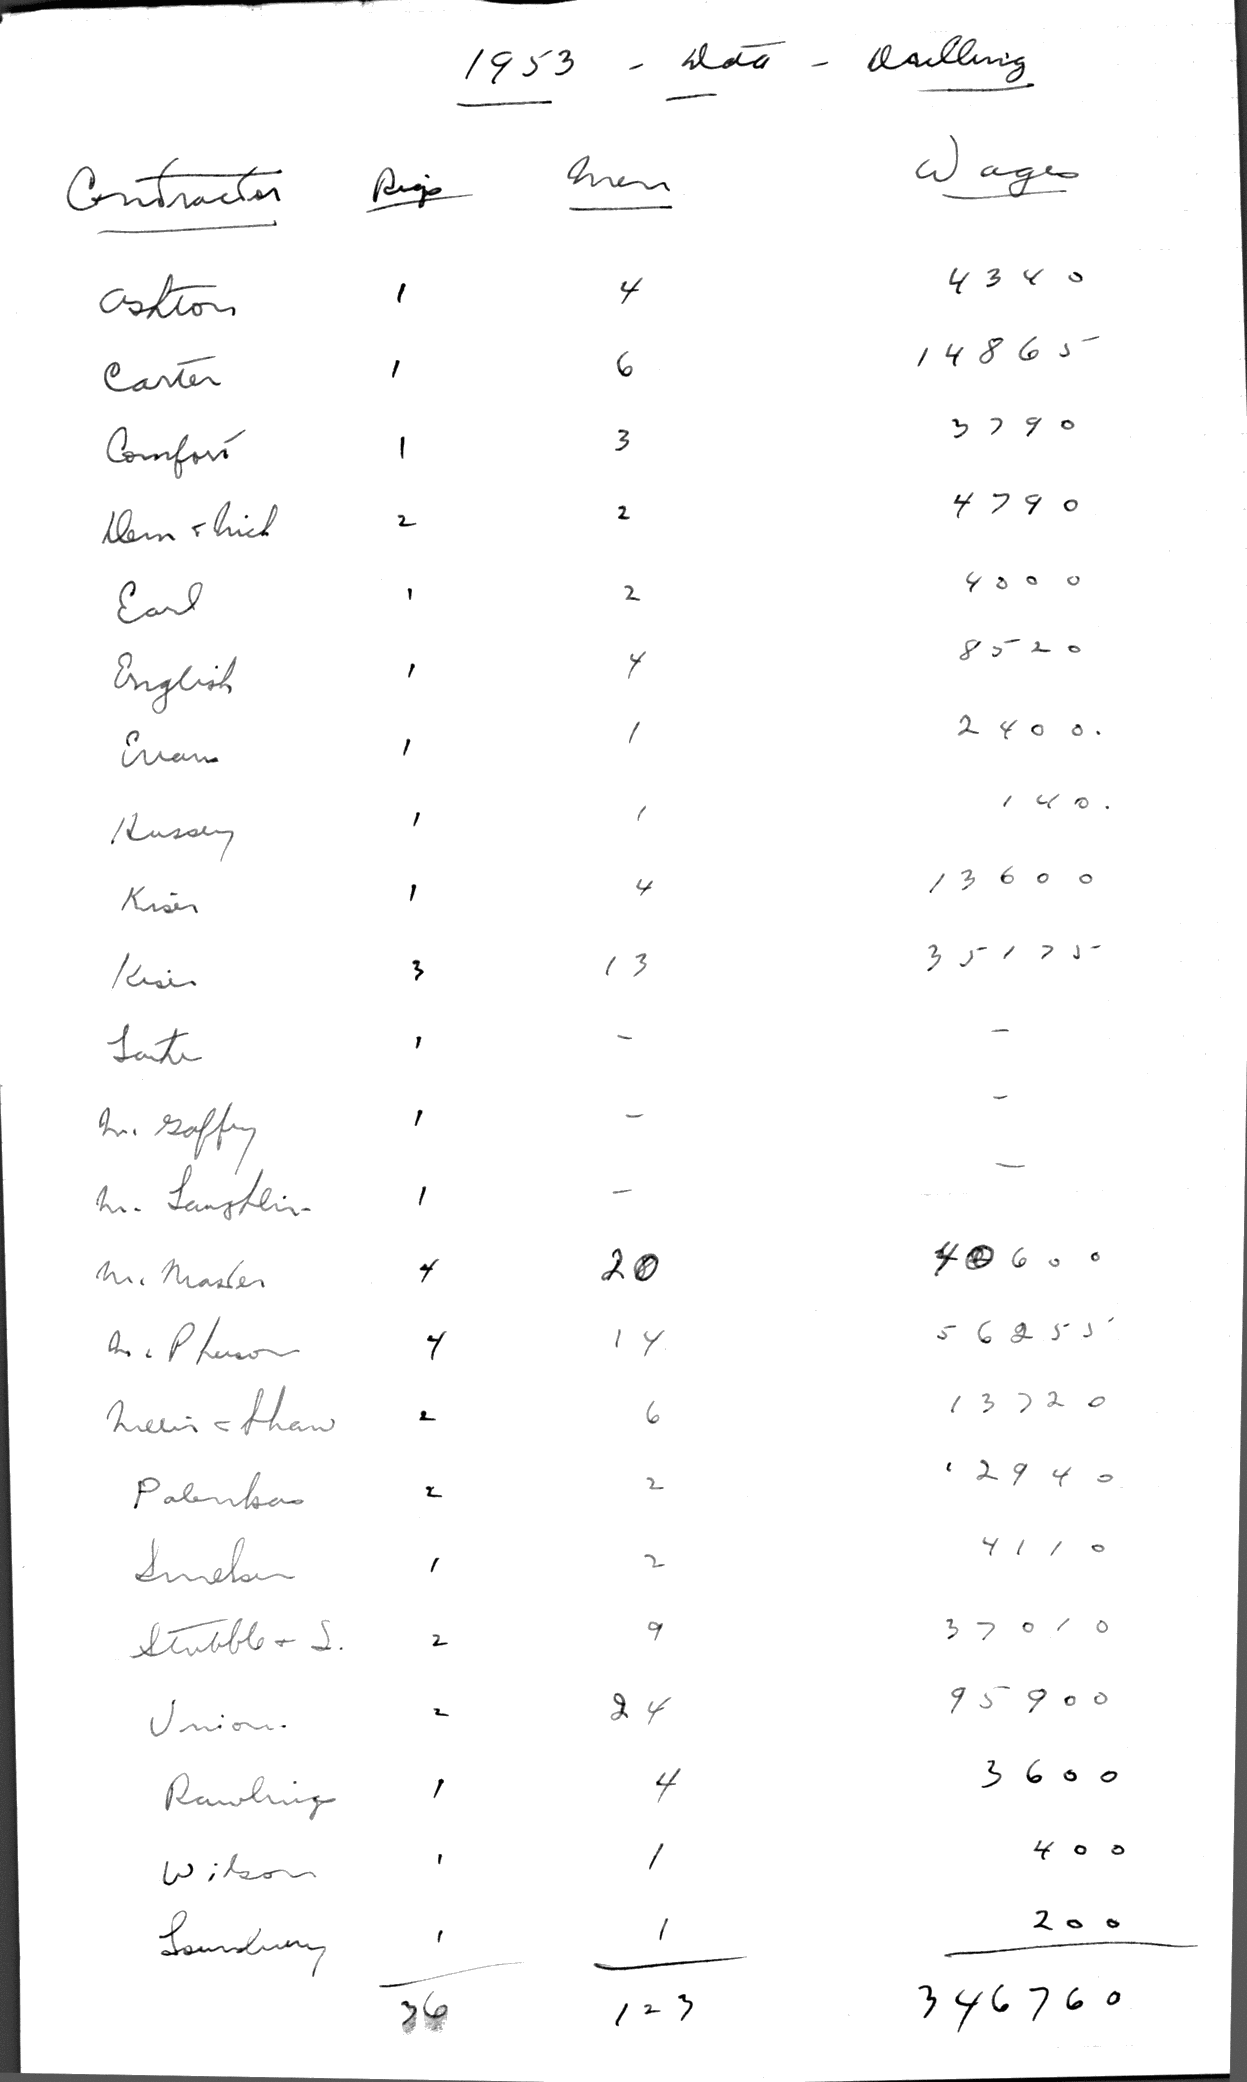 1953 - Data - Drilling
Contractor Rigs Men Wages
Ashton 1 4 4340
Carter 1 6 14865
Comfort 1 3 3790
2 2 4790
Earl 1 2 4000
English 1 4 8520
Evans 1 1 2400.
Hussey 1 1 140.
Kiser 1 4 13600
Kiser 3 13 35175
1 - -
Mc Gaffey 1 - -
Mc Laughlin 1 - -
Mc Master 4 20 40600
Mc Pherson 4 14 56255
& Shaw 2 6 13720
2 2 2940
Smelser 1 2 4110
Stubble & S. 2 9 37010
Union. 2 24 95900
Rawlings 1 4 3600
Wilson 1 1 400
1 1 200
36 123 346760